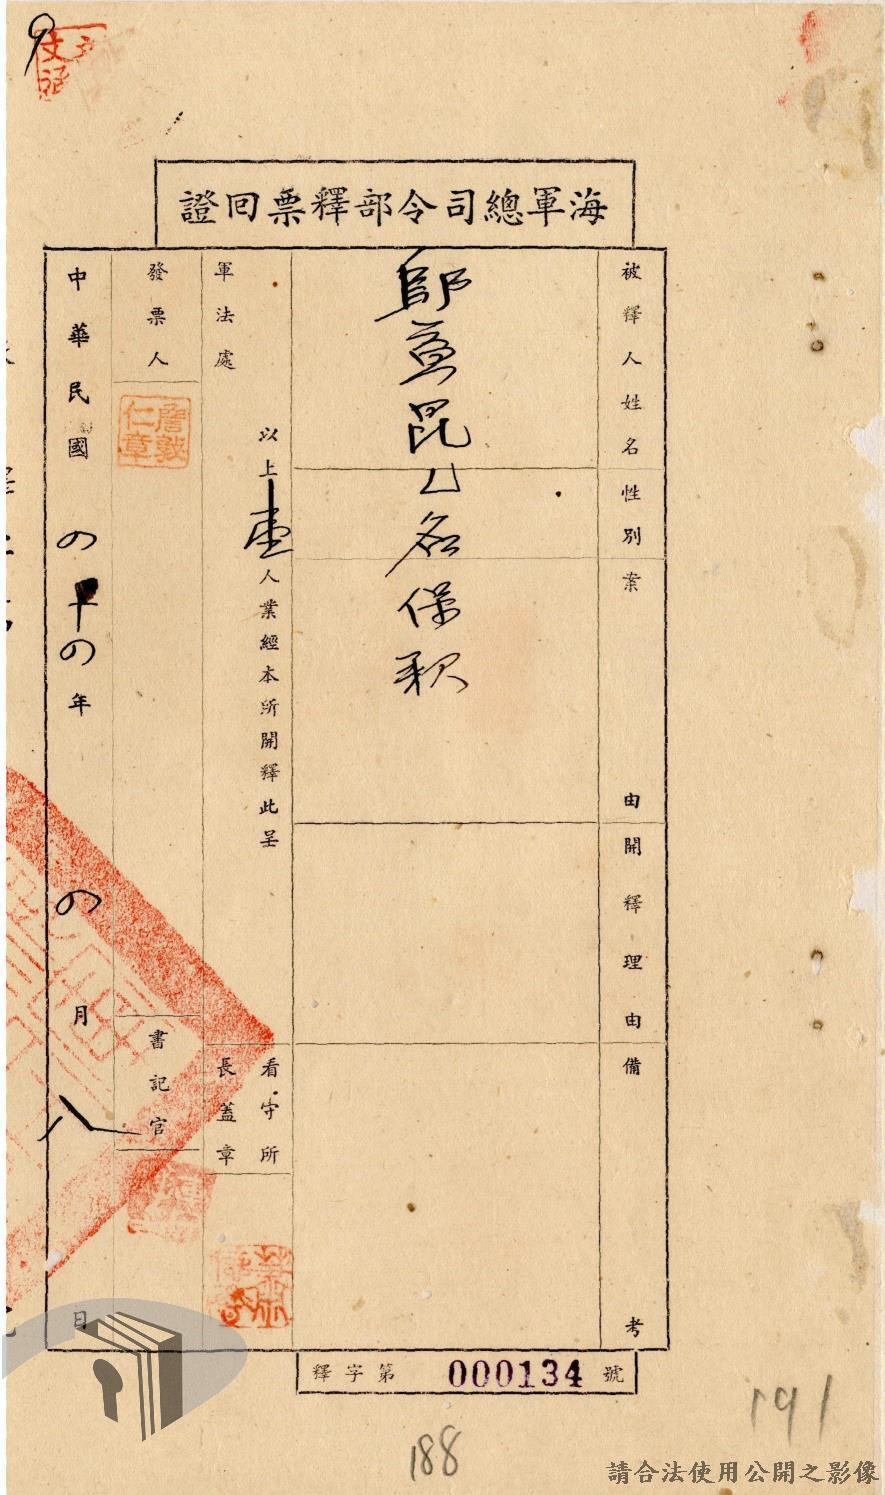 海軍總司令部釋票回證
被釋人姓名
性別
案由
開釋理由
備考
邱益昆山名保釈
軍法處
以上壹人業經本所開釋此呈
看守所
長蓋章
發票人
詹敦
仁章
書記官
中華民國四十四年四月八日
釋字第000134號
9
191
188
請合法使用公開之影像